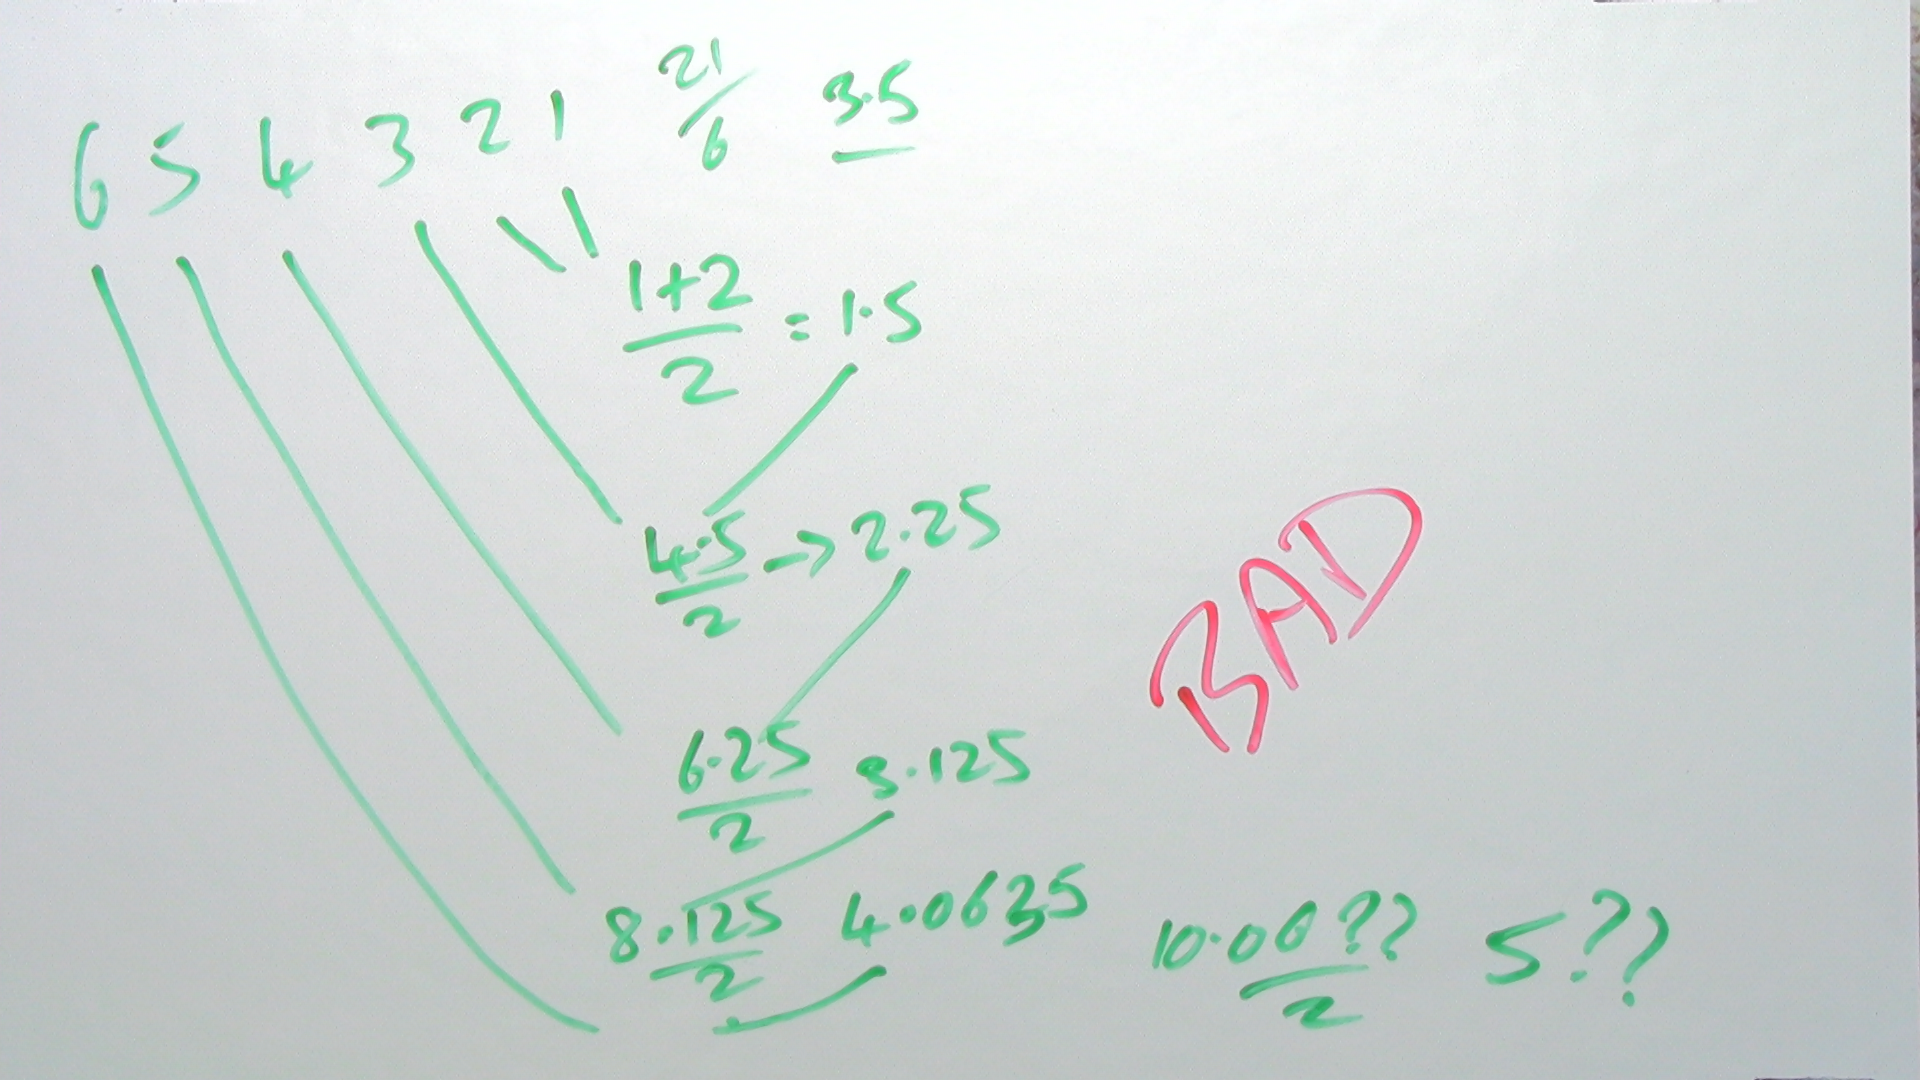 6 5 4 3 2 1 21/6 3.5
1+2/2 = 1.5
4.5/2 -> 2.25
BAD
6.25/2 3.125
8.125/2 4.0635 10.06??/2 5??